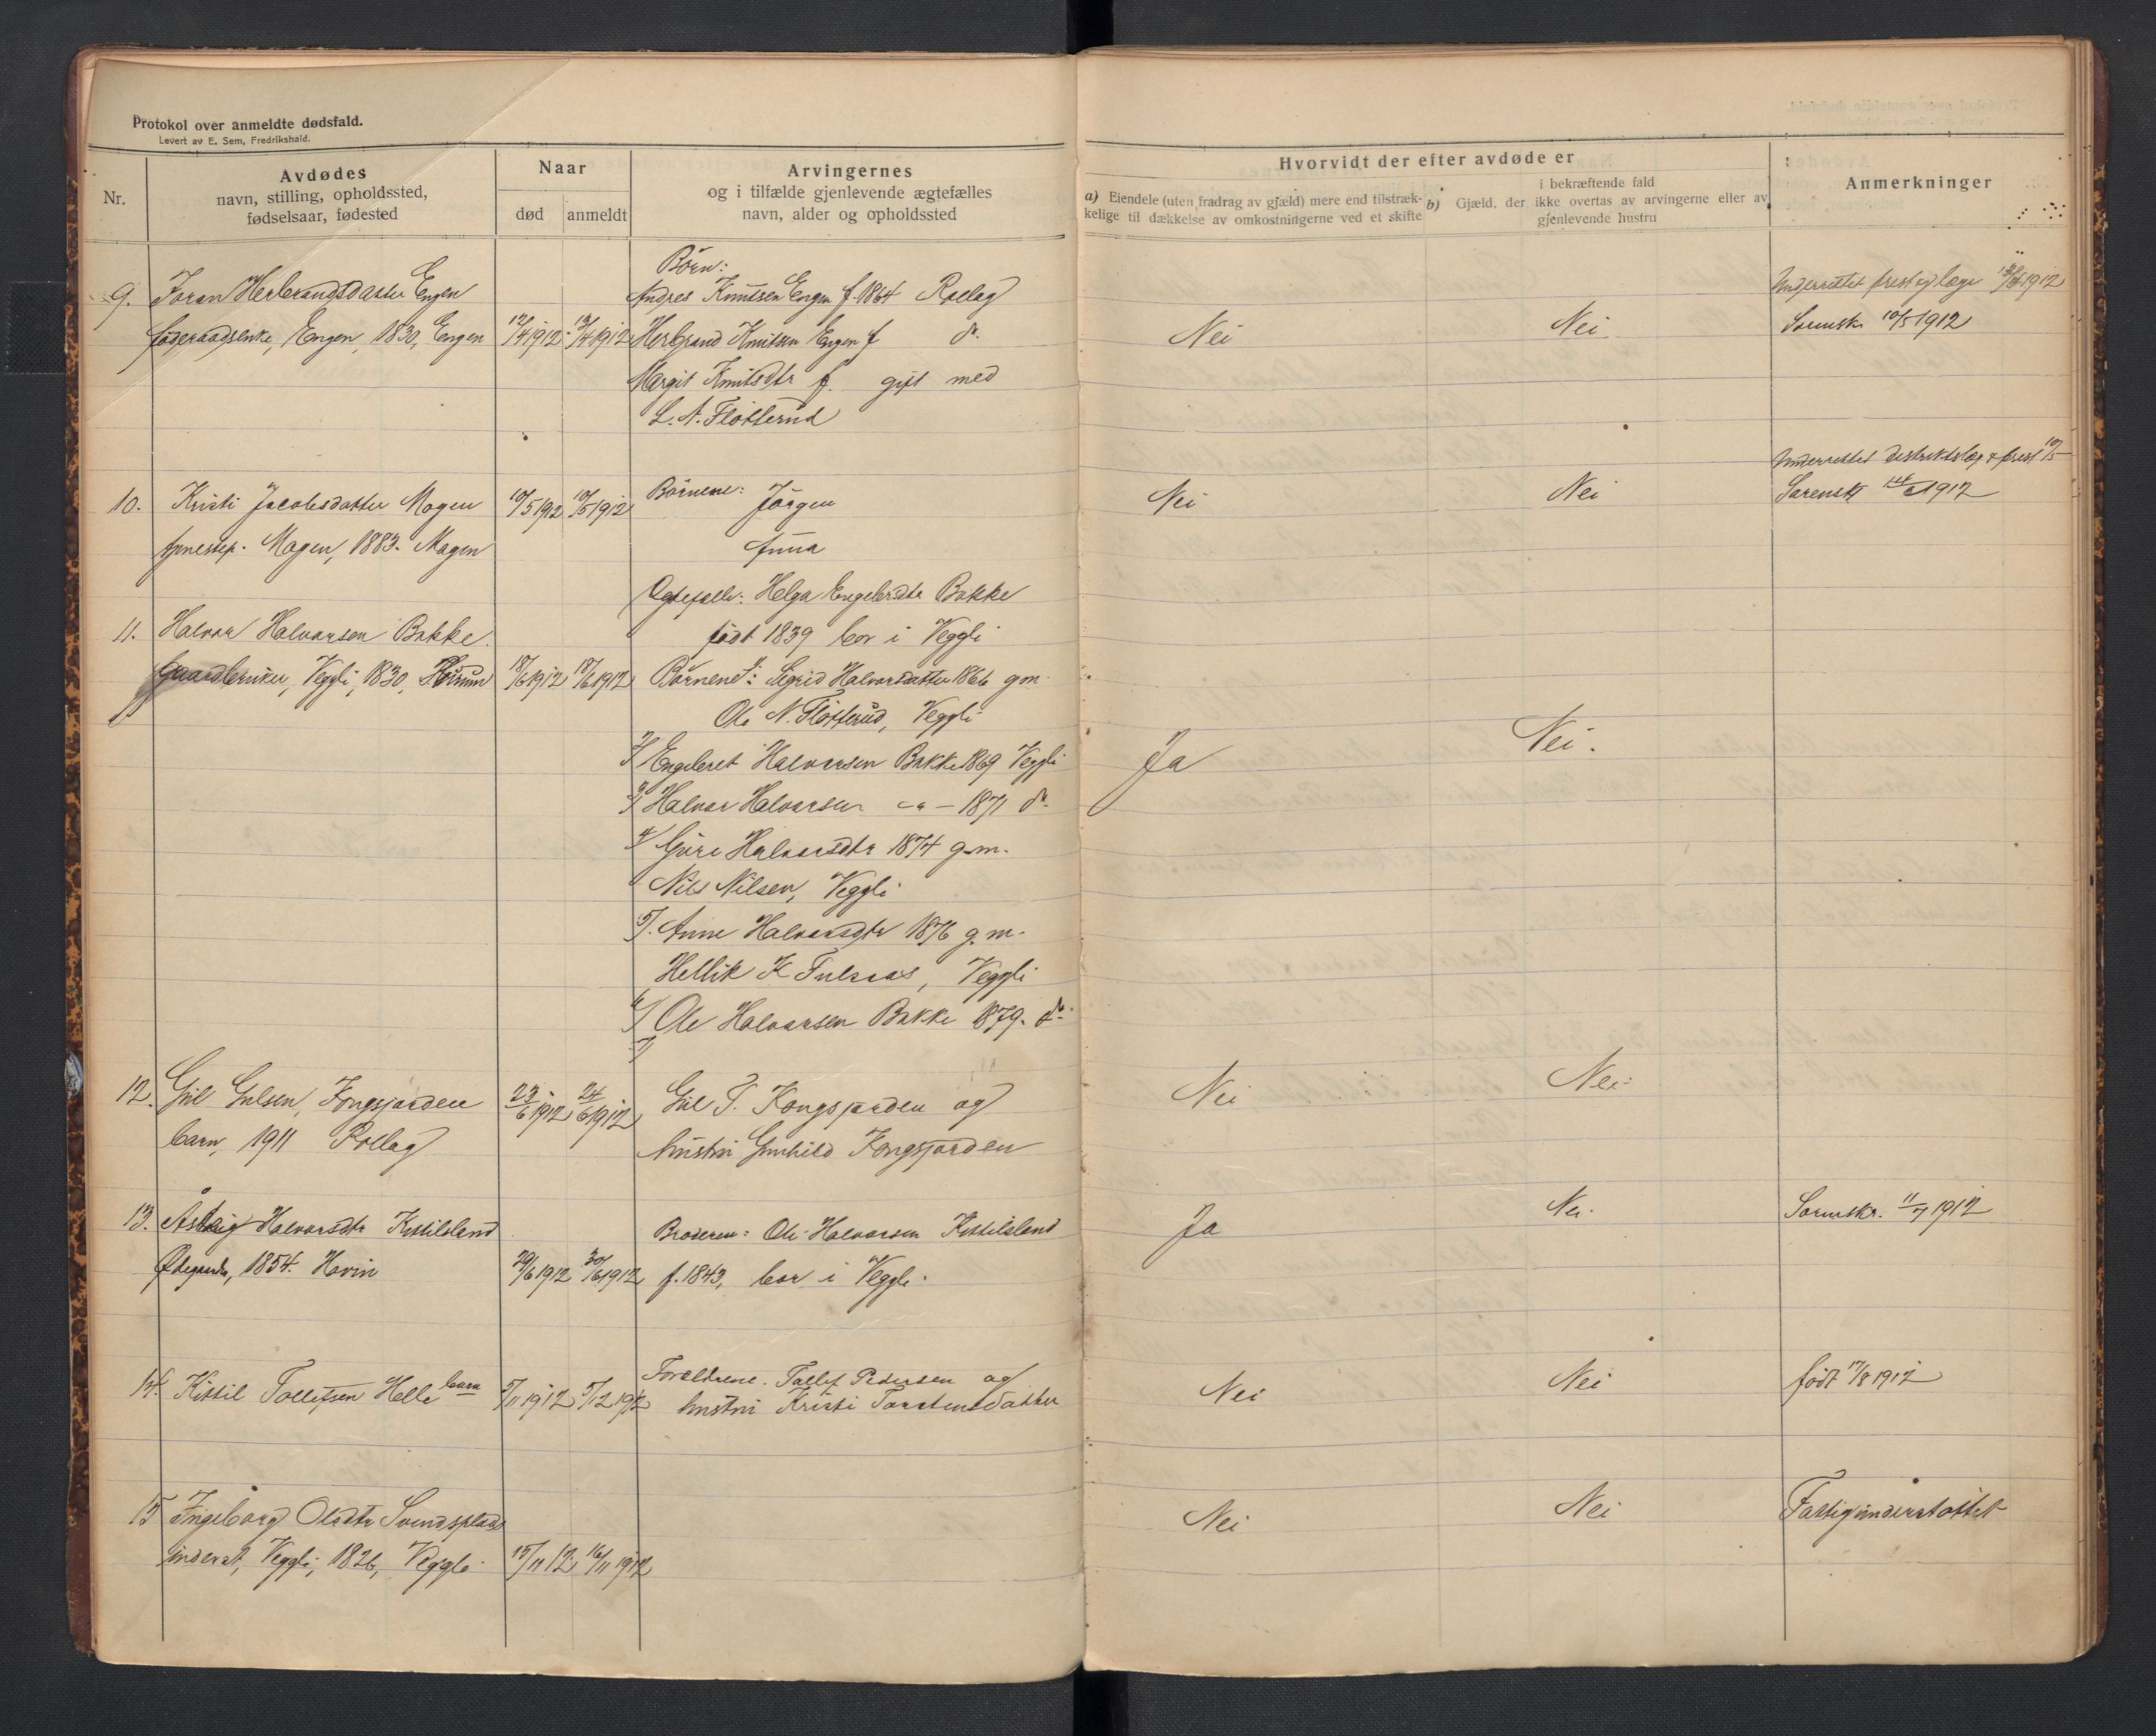 Protokol over anmeldte dødsfald.
Levert av E. Sem, Fredrikshald.
Nr.
Avdødes
navn, stilling, opholdssted,
fødselsaar, fødested
Naar
død
anmeldt
Arvingernes
og i tilfælde gjenlevende ægtefælles
navn, alder og opholdssted
Hvorvidt der efter avdøde er
a) Eiendele (uten fradrag av gjæld) mere end tilstræk-
kelige til dækkelse av omkostningerne ved et skifte
b) Gjæld, der
i bekræftende fald
ikke overtas av arvingerne eller av
gjenlevende hustru
Anmerkninger
9. Joran Herbrandsdatter Engen
føderaadsenke, Engen, 1830, Engen
12/4 1912 13/4 1912
Børn:
Andres Knutsen Engen f. 1864 Rollag
Herbrand Knutsen Engen f do
Margit Knutsdtr f. gift med
L. N. Fløtterud
Nei
Nei
Underrettet prest og læge 13/4 1912
10/5 1912
10. Kristi Jacobsdatter Mogen
Mogen, 1883. Mogen
10/5 1912 10/5 1912
Børnene: Jørgen
Anna
Nei
Nei
Underrettet distriktslæg & prest 10/5
1912
11. Halvor Halvorsen Bakke
Gaardbruker, Veggli, 1830,
18/6 1912 18/6 1912
Ægtefælle: Helga Engebrdtr Bakke
født 1839 bor i Veggli
Børnene: 1/ Sigrid Halvorsdatter 1866 gm.
Ole N. Fløtterud, Veggli
2/ Engebret Halvorsen Bakke 1869 Veggli
3/ Halvor Halvorsen — 1871 do
4/ Guri Halvorsdtr 1874 g.m.
Nils Nilsen, Veggli
5/. Anne Halvorsdtr 1876 g.m.
Hellik K. Fulsaas, Veggli
6/ Ole Halvorsen Bakke 1879. do
7/
Ja
Nei.
12. Gul Gulsen, Kongsjorden
barn, 1911 Rollag
23/6 1912 24/6 1912
Gul T. Kongsjorden og
hustru Gunhild Kongsjorden
Nei
Nei
13. Halvorsdtr Kittilsland
1854. Hovin
29/6 1912 30/6 1912
Broderen: Ole Halvorsen Kittilsland
f. 1843, bor i Veggli.
Ja
Nei.
11/7 1912
14. Kittil Tollefsen Helle barn
5/11 1912 5/12 1912
Forældrene. Tollef Pedersen og
hustru Kristi Torstensdatter
Nei
Nei
født 17/8 1912
15 Ingeborg Olsdtr Svendsplads
inderst, Veggli, 1826, Veggli
15/11 12 16/11 1912
Nei
Nei
Fattigunderstøttet